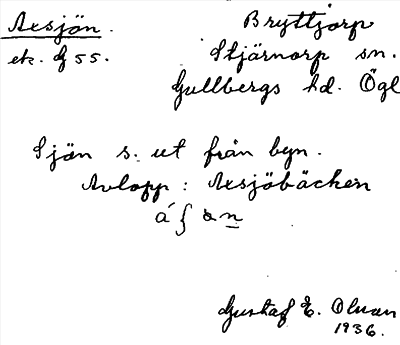 Axsjön.
Bryttjorp
ek. G 55.
Stjärnorp sn.
Gullbergs hd. Ögl
Sjön s: ut från byn.
Avlopp: Axsjöbäcken
Gustaf E. Olsson
1936.